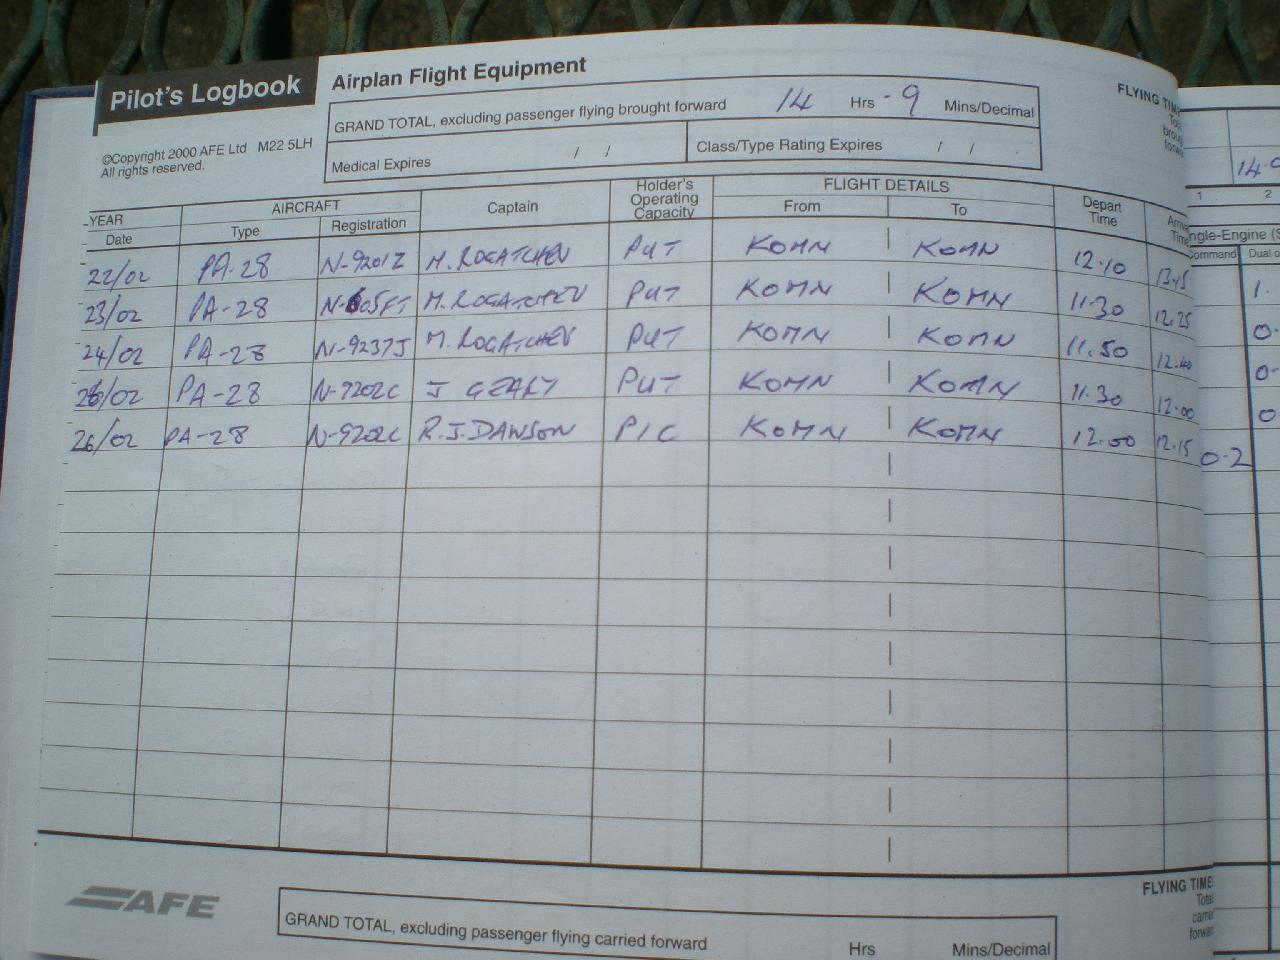 Pilot's Logbook
Airplan Flight Equipment
FLYING TIME
©Copyright 2000 AFE Ltd M22 5LH
All rights reserved.
GRAND TOTAL, excluding passenger flying brought forward 14 Hrs .9 Mins/Decimal
Medical Expires / / Class/Type Rating Expires / /
14.9
1 2
YEAR AIRCRAFT Captain Holder's Operating Capacity FLIGHT DETAILS Depart Time
Date Type Registration From To
22/02 PA-28 N-9201Z M. ROGATCHEV PUT KOMN KOMN 12.10 13.15 1.
23/02 PA-28 N-605FT M. ROGATCHEV PUT KOMN KOMN 11.30 12.25 0.
24/02 PA-28 N-9237J M. ROGATCHEV PUT KOMN KOMN 11.50 12.40 0.
26/02 PA-28 N-9202C J GEARY PUT KOMN KOMN 11.30 12.00 0
26/02 PA-28 N-9202C R.J.DAWSON PIC KOMN KOMN 12.00 12.15 0.2
AFE
GRAND TOTAL, excluding passenger flying carried forward Hrs Mins/Decimal
FLYING TIME